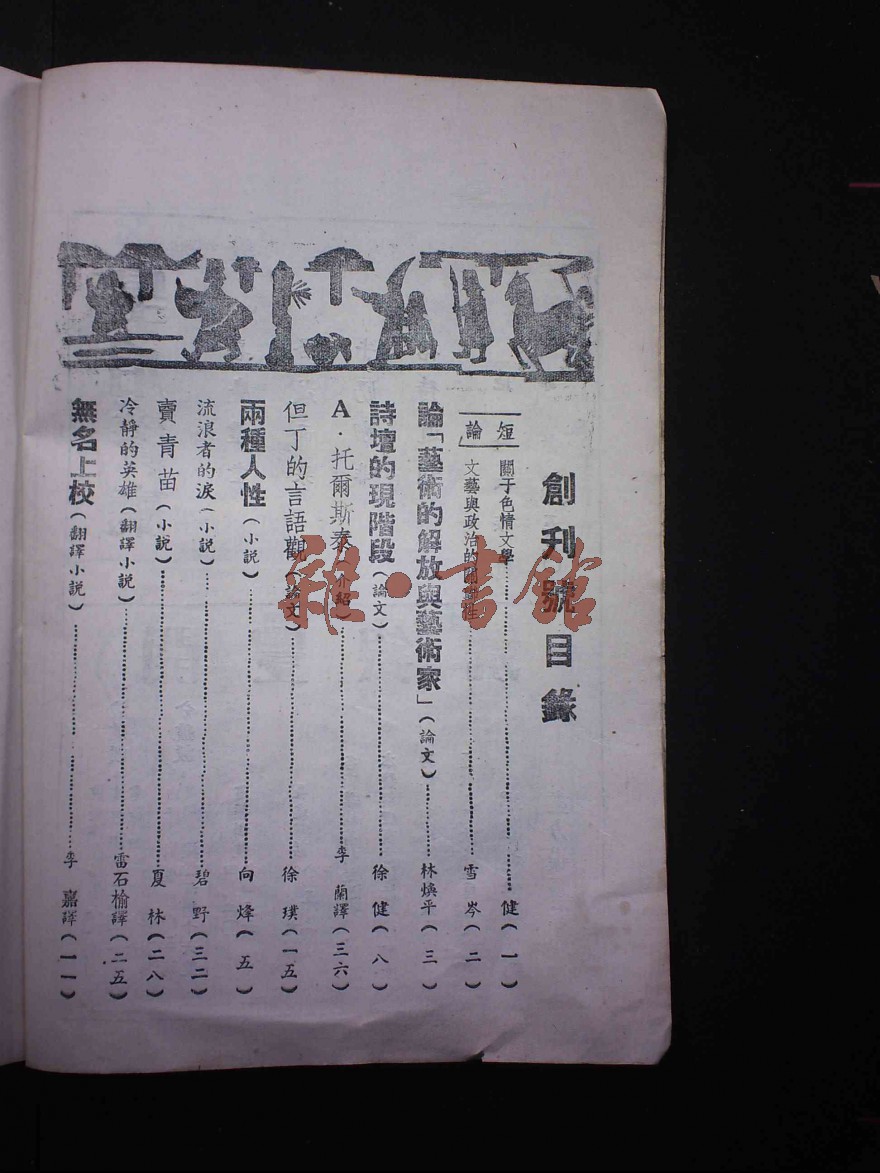 創刊號目錄
短論
關于色情文學……健(一)
文藝與政治的……雪岑(二)
論「藝術的解放與藝術家」(論文)……林煥平(三)
詩壇的現階段(論文)……徐健(八)
A·托爾斯泰(介紹)……李蘭譯(三六)
但丁的言語觀(論文)……徐璞(一五)
兩種人性(小説)……向烽(五)
流浪者的淚(小説)……碧野(三二)
賣青苗(小説)……夏林(二八)
冷靜的英雄(翻譯小説)……雷石榆譯(二五)
無名上校(翻譯小説)……李嘉譯(一一)
雜·書館